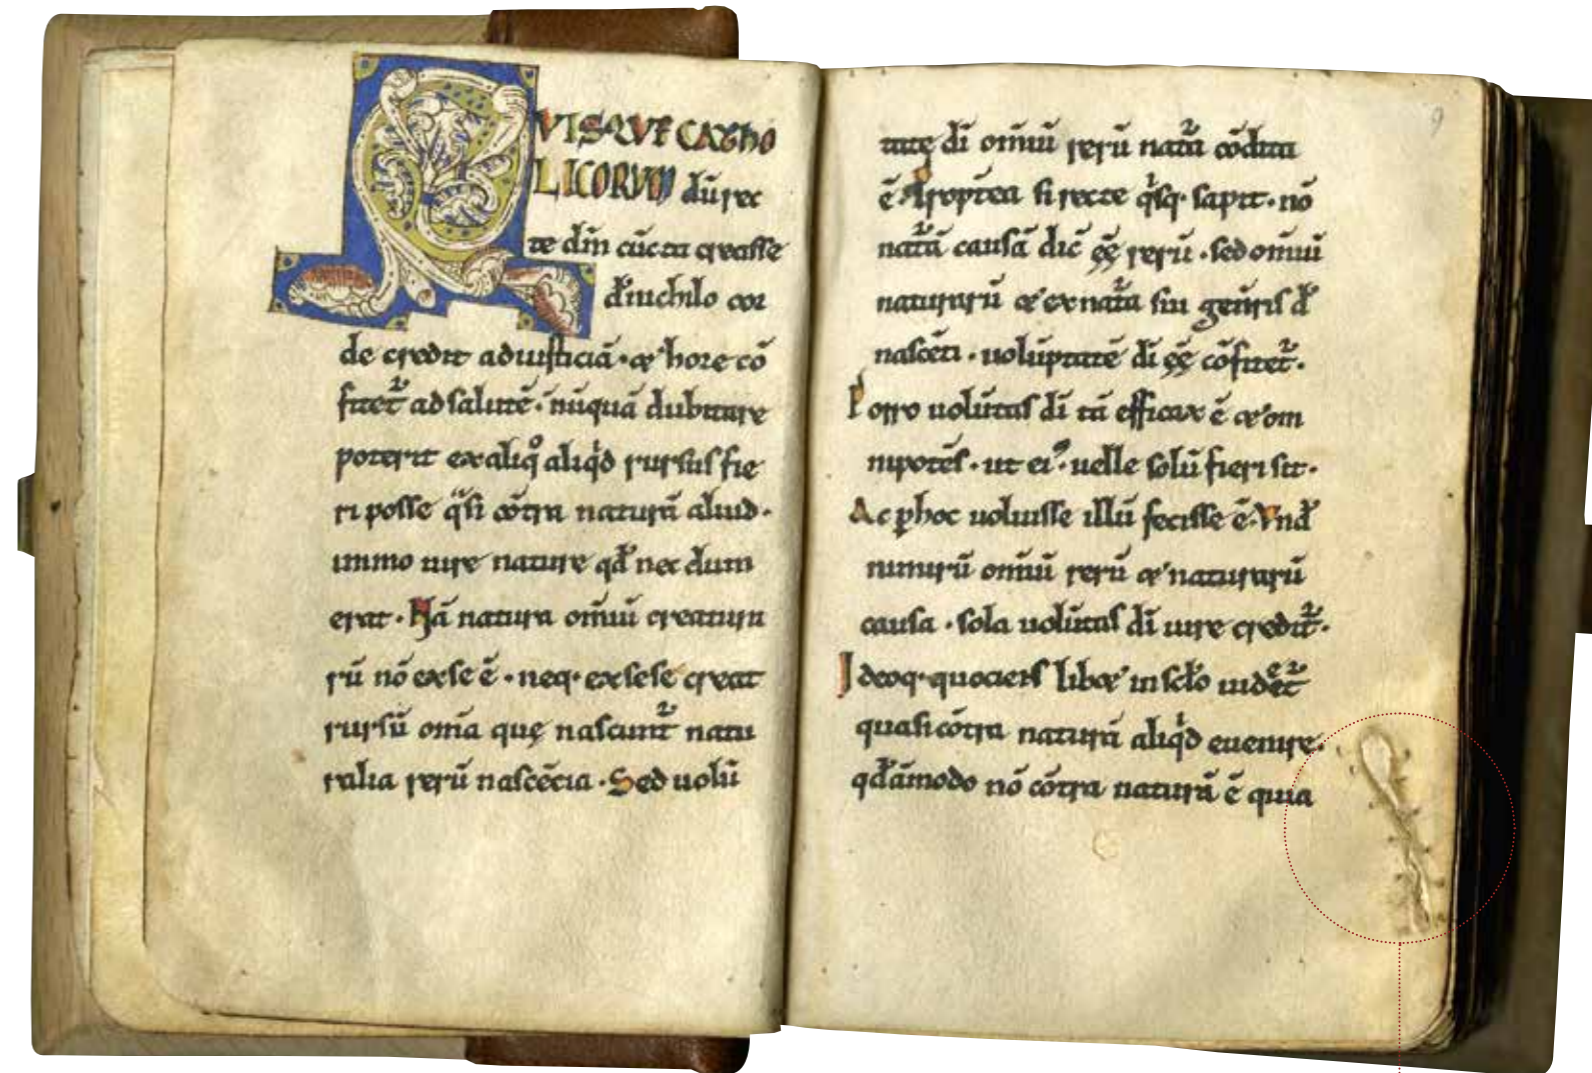 QVISQVE CATHO
LICORVM dū rec
te dīn cūcta creasse
đnichilo cor
de credit adiusticiā · & hore cō
fitet᷑ ad salutē · nūquā dubitare
poterit ex aliqͦ aliqͥd rursus fie
ri posse qᷓsi cōtra naturā aliud ·
immo iure nature qđ nec dum
erat · Nā natura omīū creatura
rū nō ex se ē · neq · ex sese creat
rursū om̄a quę nascunt᷑ natu
ralia rerū nascēcia · Sed uolū
9
tate dī omīū rerū nat᷑a cōdita
ē Propt̄ea si recte qͥsq · sapit · nō
nat᷑ā causā dic̄ ēē rerū · sed omīū
naturarū & ex nat᷑a sui geñis đ
nascēti · uolūptatē dī ēē cōfitet᷑ ·
Porro uolūtas dī tā efficax ē & om
nipotēs · ut ei᷒ · uelle solū fieri sit ·
Ac ꝑ hoc uoluisse illū fecisse ē · Vnđ
nimirū omīū rerū & naturarū
causa · sola uolūtas dī iure credit᷑ ·
Ideoq · quociens lib& in sclo uidēt᷑
quasi cōtra naturā aliqͥd euenire ·
qđāmodo nō cōtra naturā ē quia